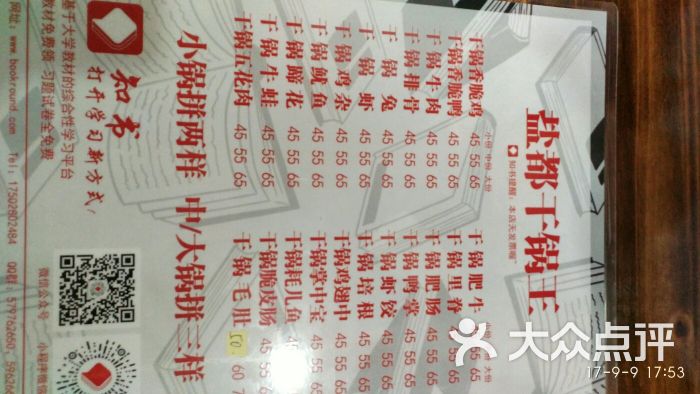 盐都干锅王
知书提醒：本店无发票喔~
小份 中份 大份
干锅香脆鸡 45 55 65
干锅香脆鸭 45 55 65
干锅牛肉 45 55 65
干锅排骨 45 55 65
干锅兔 45 55 65
干锅虾 45 55 65
干锅鸡杂 45 55 65
干锅鱿鱼 45 55 65
干锅郡花 45 55 65
干锅牛蛙 45 55 65
干锅五花肉 45 55 65
大份
干锅肥牛 65
干锅里脊 65
干锅肥肠 45 55 65
干锅鸭掌 45 55 65
干锅虾饺 45 55 65
干锅培根 45 55 65
干锅鸡翅中 45 55 65
干锅掌中宝 45 55 65
干锅耗儿鱼 45 55 65
干锅脆皮肠 45 55 65
干锅毛肚 50 60 7
小锅拼两样 中/大锅拼三样
知书
打开学习新方式！
基于大学教材的综合性学习平台
教材免费领 习题试卷全免费
网址：www.bookround.com Tel：17502802484 QQ群：579262660、596266
微信公众号
小程序微信
大众点评
17-9-9 17:53